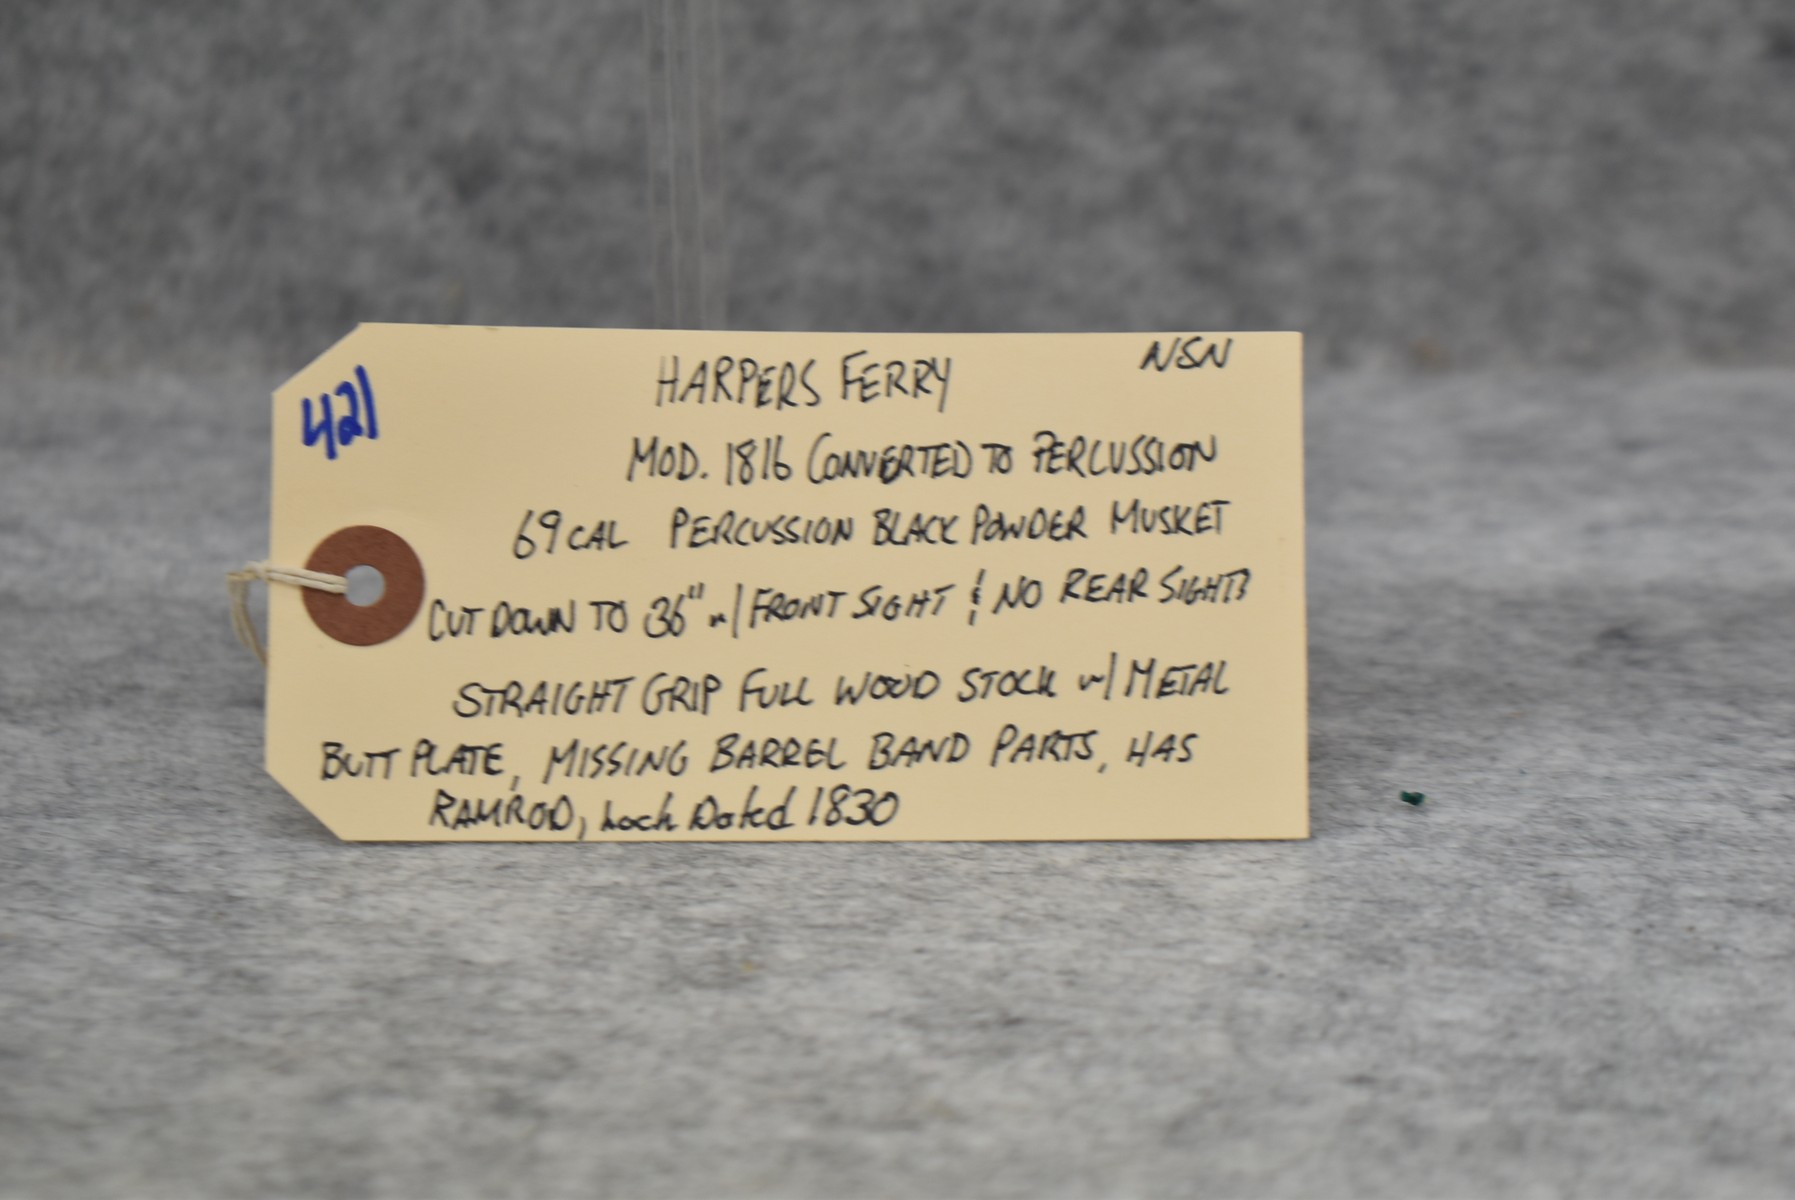 421
HARPERS FERRY NSN
MOD. 1816 CONVERTED TO PERCUSSION
69 CAL PERCUSSION BLACK POWDER MUSKET
CUT DOWN TO 36" w/ FRONT SIGHT & NO REAR SIGHT?
STRAIGHT GRIP FULL WOOD STOCK w/ METAL
BUTT PLATE, MISSING BARREL BAND PARTS, HAS
RAMROD, Lock Dated 1830